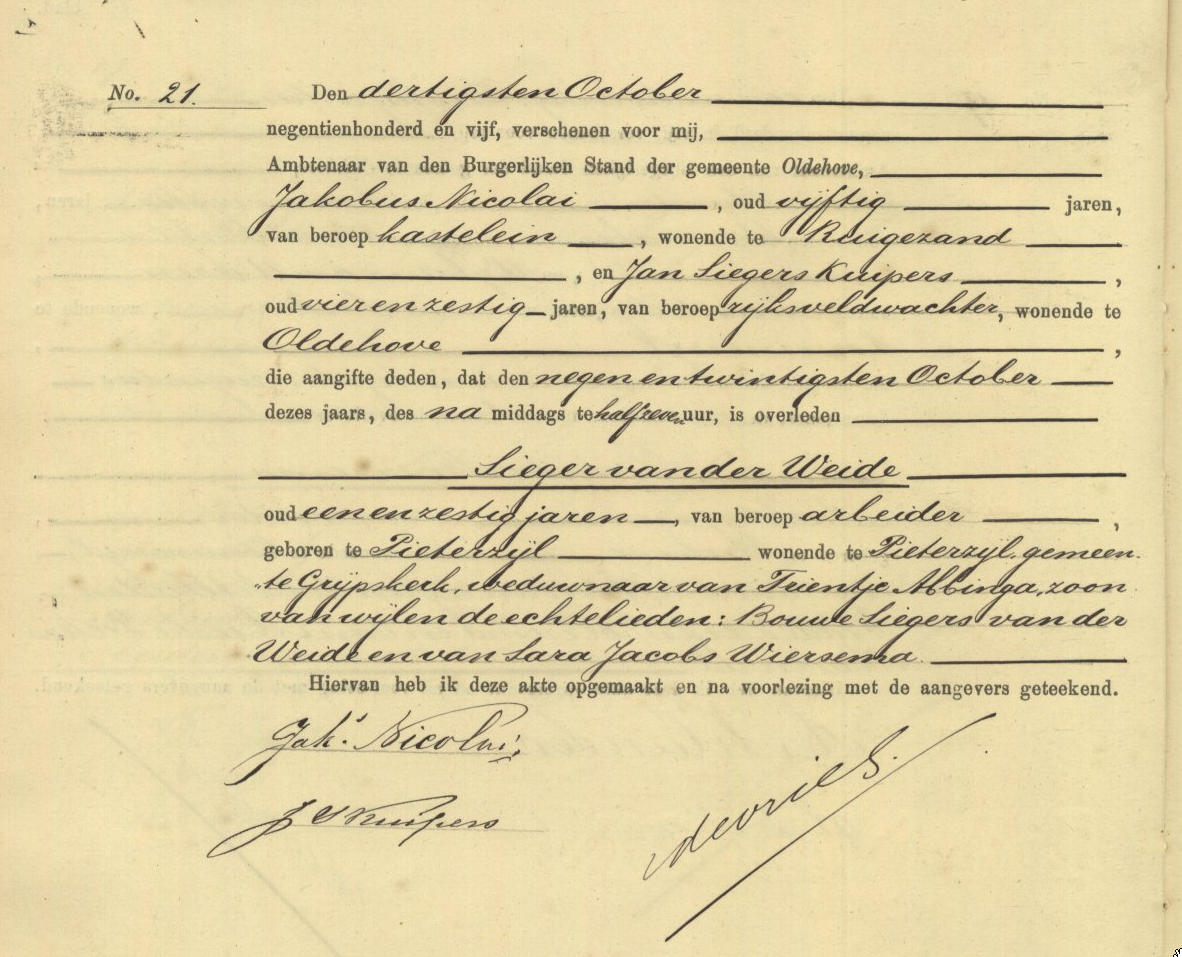 No. 21. Den dertigsten October
negentienhonderd en vijf, verschenen voor mij,
Ambtenaar van den Burgerlijken Stand der gemeente Oldehove,
Jakobus Nicolai , oud vijftig jaren,
van beroep kastelein , wonende te Ruigezand
, en Jan Siegers Kuipers ,
oud vier en zestig jaren, van beroep rijksveldwachter, wonende te
Oldehove ,
die aangifte deden, dat den negen en twintigsten October
dezes jaars, des na middags te half zeven uur, is overleden
Sieger van der Weide
oud een en zestig jaren , van beroep arbeider ,
geboren te Pieterzijl wonende te Pieterzijl, gemeen-
te Grijpskerk, weduwnaar van Trientje Abbinga, zoon
van wijlen de echtelieden: Bouwe Siegers van der
Weide en van Sara Jacobs Wiersema.
Hiervan heb ik deze akte opgemaakt en na voorlezing met de aangevers geteekend.
Jak.s Nicolai
J S Kuipers
de Vries.